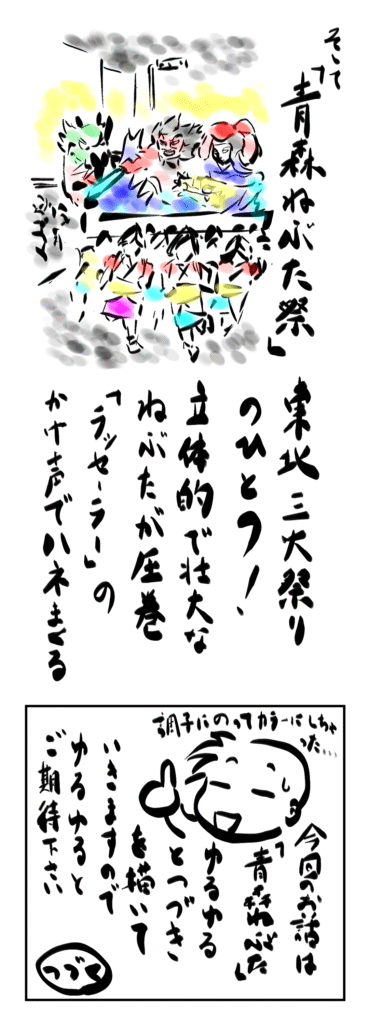 そして
「青森ねぶた祭」
東北三大祭り
のひとつ！
立体的で壮大な
ねぶたが圧巻
「ラッセーラー」の
かけ声でハネまくる
調子にのってカラーにしちゃ
った…
今回のお話は
「青森ねぶた」
ゆるゆる
とつづき
を描いて
いきますので
ゆるゆると
ご期待下さい
つづく